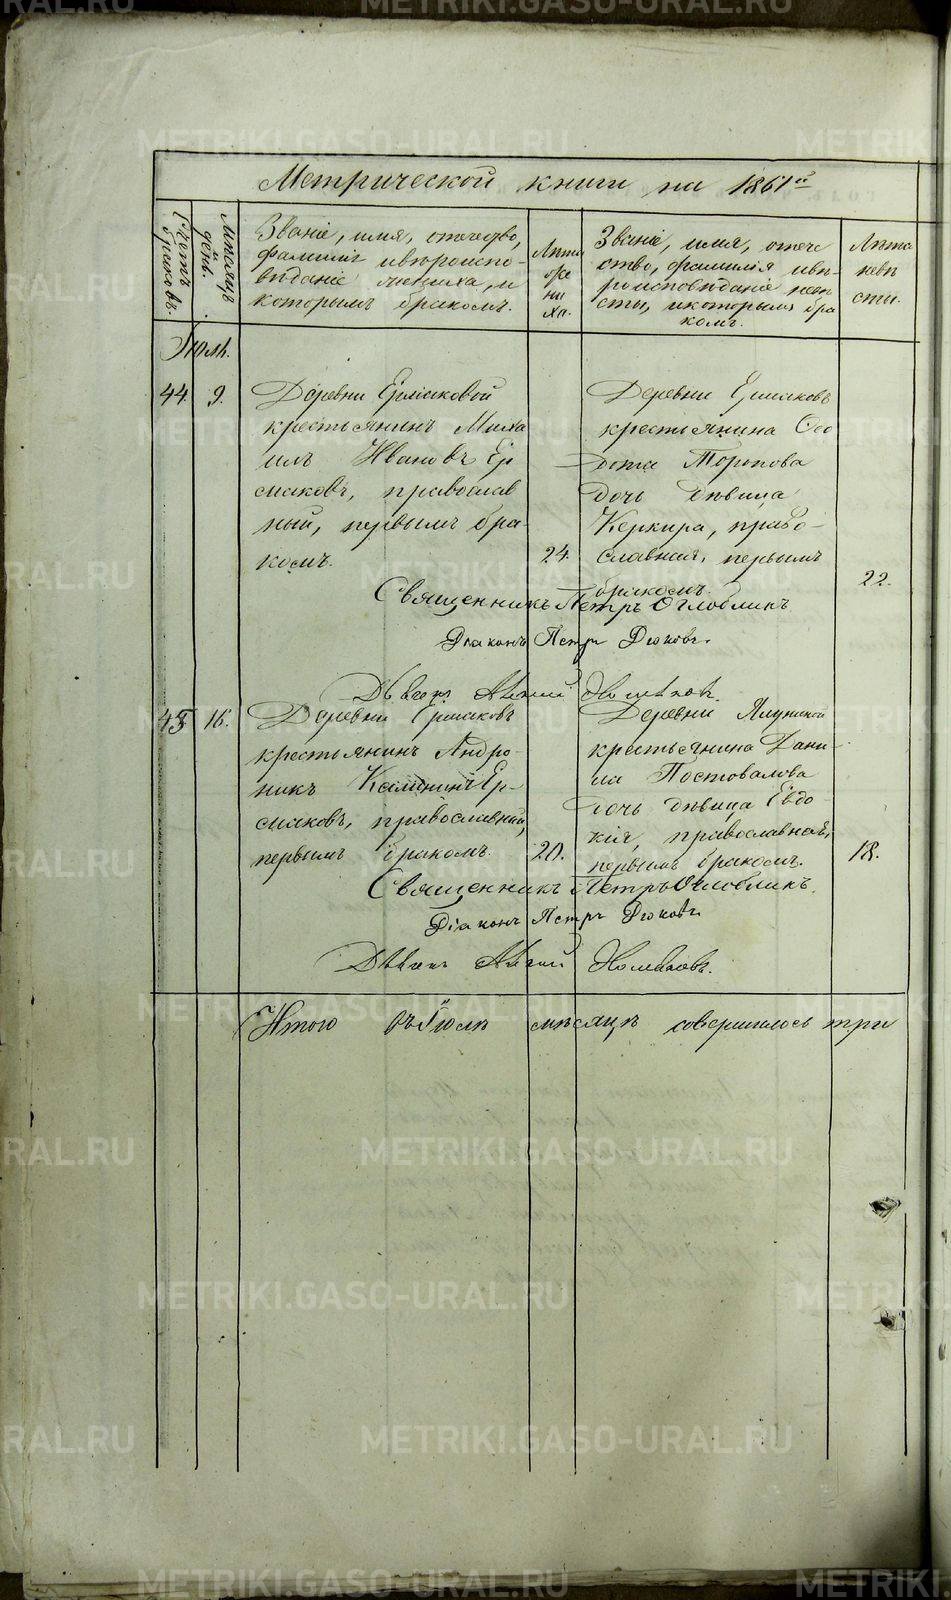 Метрической книги на 1861й
Счетъ браковъ.
Мѣсяцъ и день.
Званіе, имя, отчество,
фамилія и вѣроиспо-
вѣданіе жениха, и
которымъ бракомъ.
Лѣта
же
ни
ха.
Званіе, имя, отече
ство, фамилія и вѣ
роисповѣданіе невѣ
сты, и которымъ бра
комъ.
Лѣта
невѣ
сты.
Іюль.
44. 9.
Деревни Ермаковой
крестьянинъ Миха
илъ Ивановъ Ер
маковъ, православ
ный, первымъ бра-
комъ.
24.
Деревни Ермаковой
крестьянина Ѳео
дота Торопова
дочь дѣвица
Керкира, право-
славная, первымъ
бракомъ.
22.
Священникъ Петръ Оглоблинъ
Діаконъ Петръ Дюковъ.
45 16.
Деревни Ермаковой
крестьянинъ Андро-
никъ Калининъ Ер-
маковъ, православный,
первымъ бракомъ.
20.
Деревни
крестьянина Дани-
ла Постовалова
дочь дѣвица Евдо-
кія, православная,
первымъ бракомъ.
18.
Священникъ Петръ Оглоблинъ.
Діаконъ Петръ Дюковъ
Итого въ Іюлѣ мѣсяцѣ совершилось три
METRIKI.GASO-URAL.RU